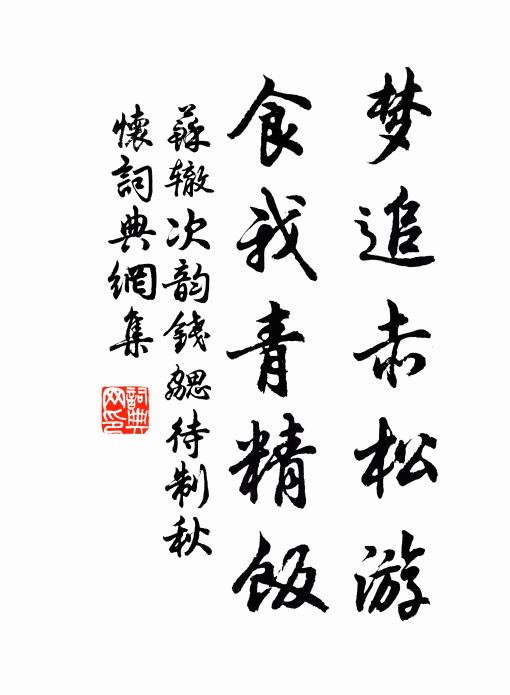 梦追赤松游
食我青精饭
蘇辙次韵錢勰待制秋
懷詞典網集
詞典网印